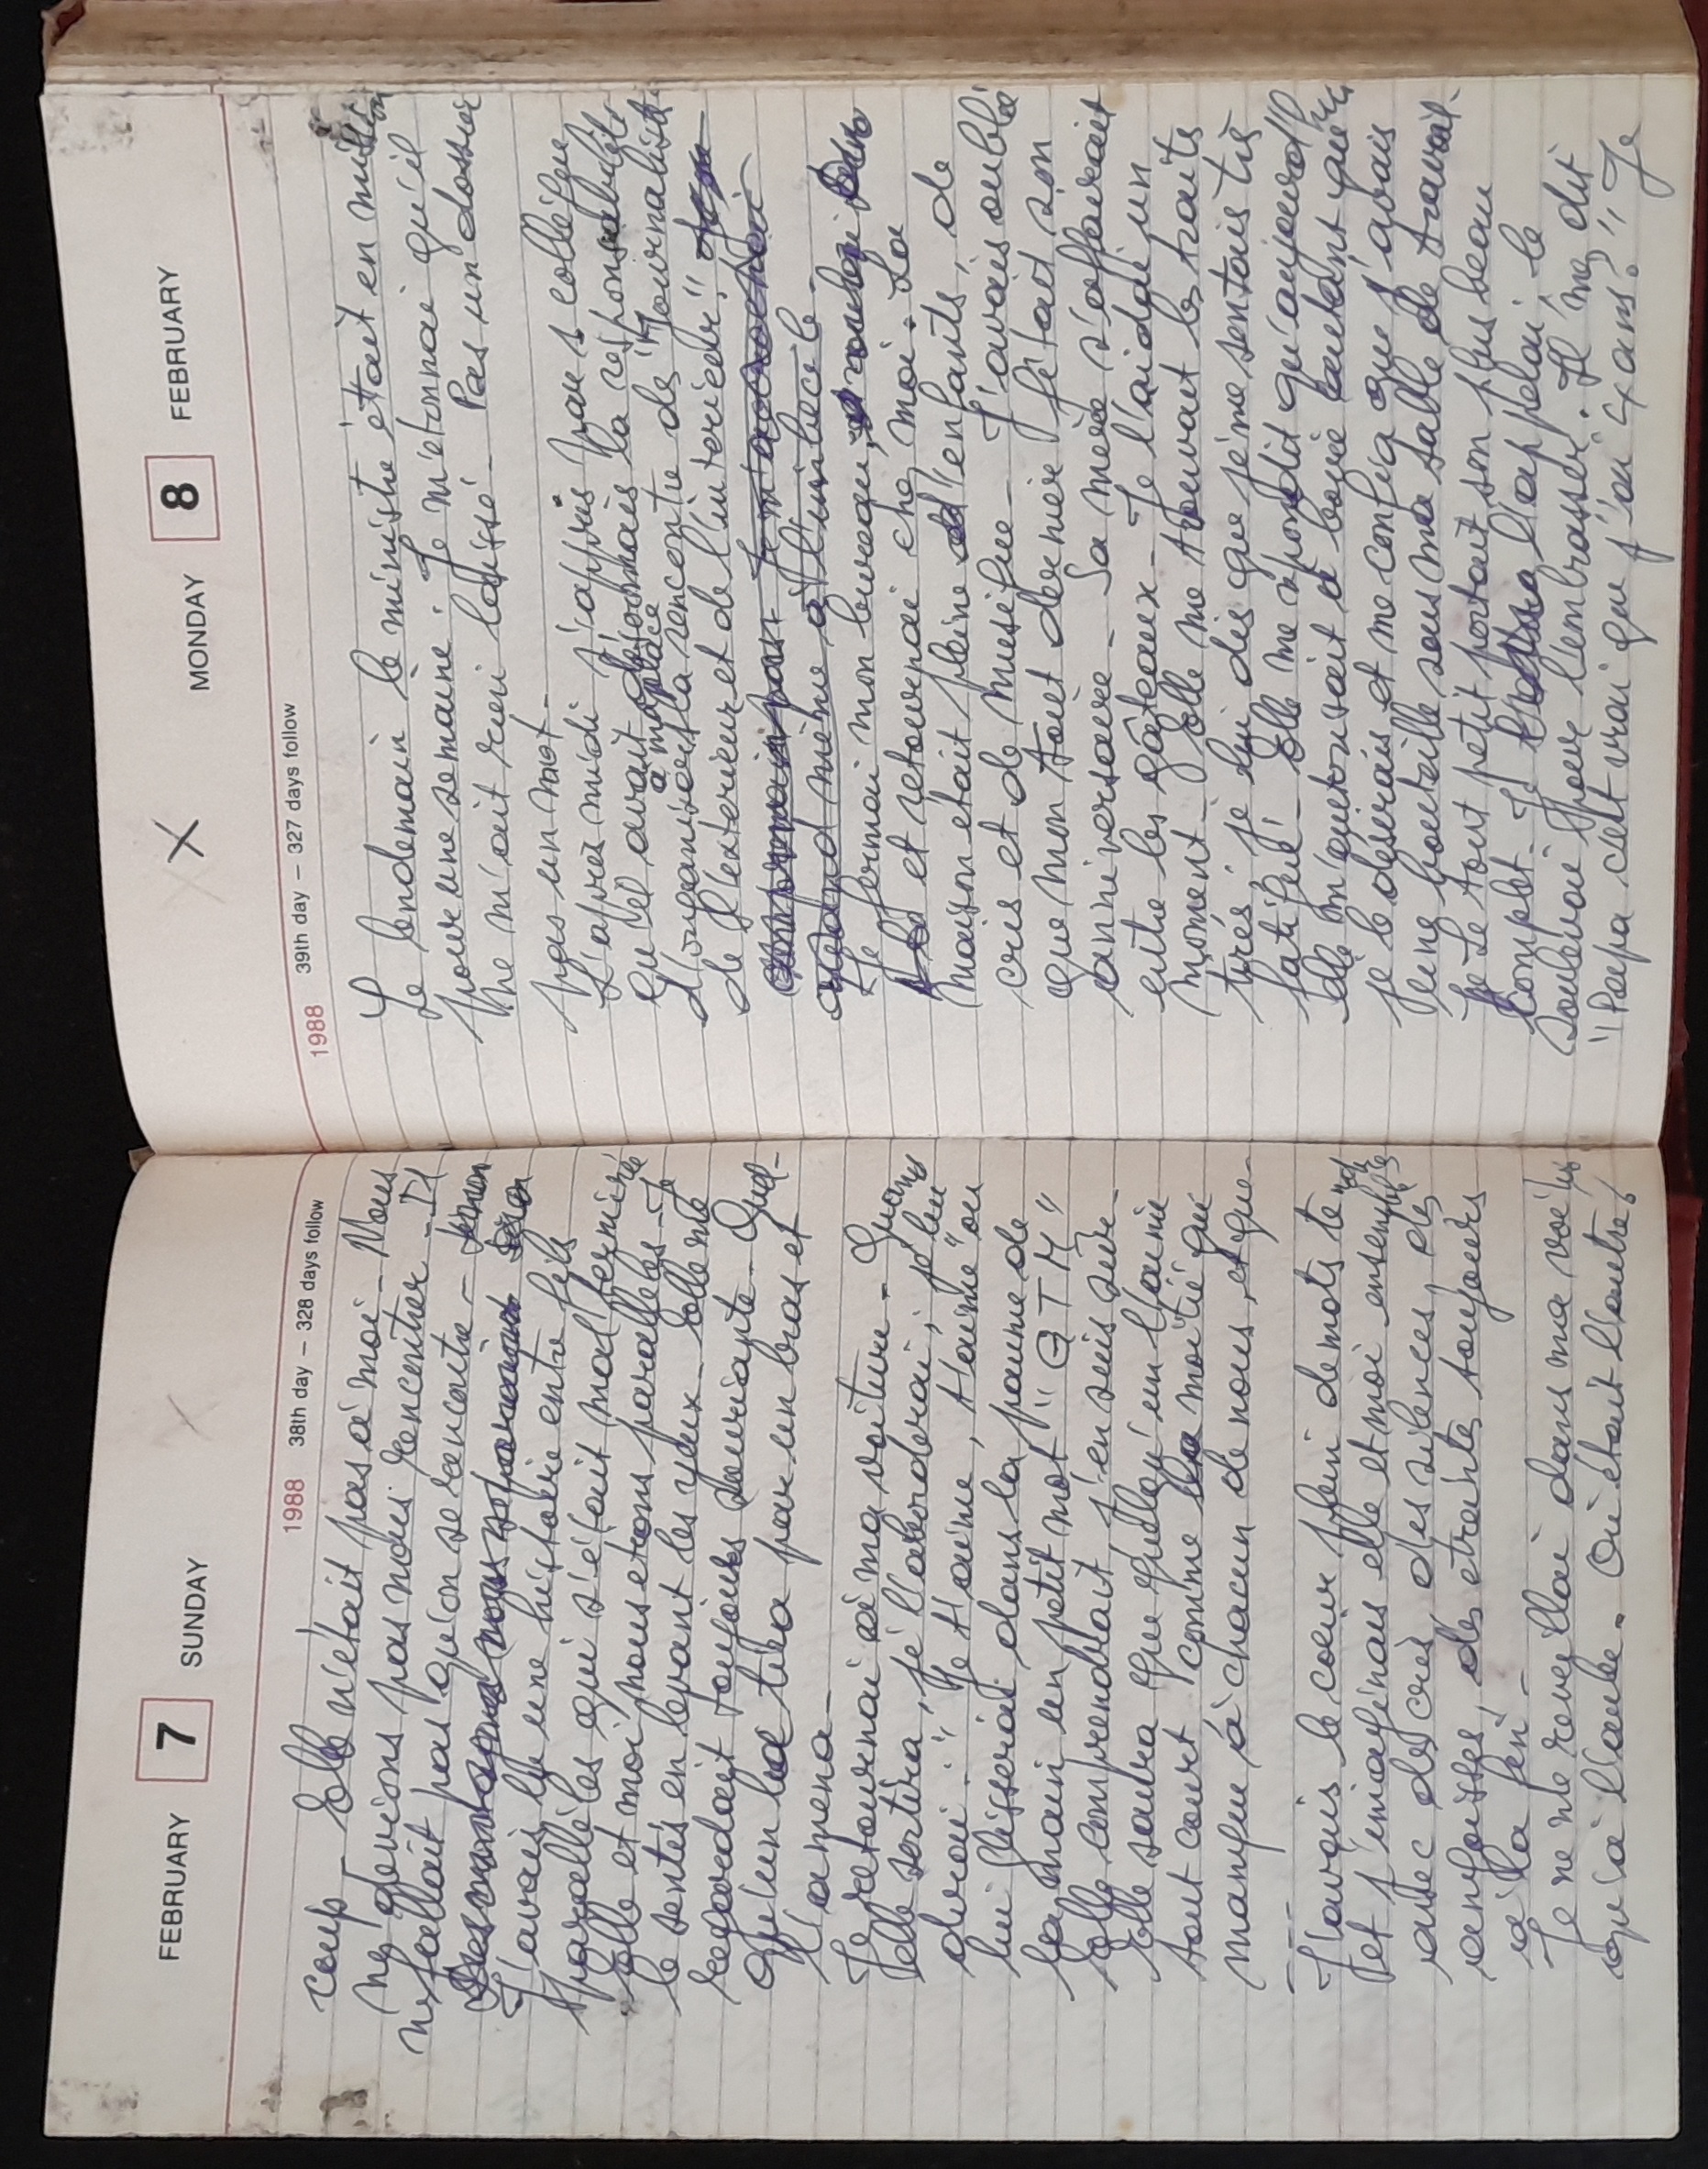 FEBRUARY 7 SUNDAY
1988 38th day – 328 days follow
coup – Elle n'était pas à moi – Nous
ne devions pas nous rencontrer – Il
ne fallait pas qu'on se rencontre –
J'avais lu une histoire entre fils
parallèles qui s'était mal terminée
Elle et moi, nous etions parallèles – Je
le sentis en levant les yeux – Elle me
regardait toujours souriante – Quel-
qu'un la tira par un bras et
l'amena –
Je retournai à ma voiture – Quand
elle sortira, je l'aborderai, je lui
dirai : " Je t'aime, t'aime " ou
lui glisserai dans la paume de
la main un petit mot " G T M "
Elle comprendrait j'en suis sûr –
Elle saura que quelqu'un l'aime
tout court comme la moitié qui
manque à chacun de nous, et que –
– –
J'avais le coeur plein de mots tendres
et j'imaginais elle et moi ensemble
avec des cris des silences, des
angoisses, des etreintes toujours
à la fin –
Je me reveillai dans ma voiture
qu'à l'aube. Où était l'autre,
MONDAY 8 FEBRUARY
1988 39th day – 327 days follow
Le lendemain le ministre était en mission
pour une semaine. Je m'etonnai qu'il
ne m'ait rien laissé – Pas un dossier
pas un mot –
L'après midi j'appris par s collègue
qu'il avait désormais la responsabilité
à ma place
d'organiser la rencontre des journalistes
de l'exterieur et de l'interieur "
quand même à l'imbecile –
Je fermai mon bureau,
et retournai chez moi. La
maison etait pleine d'enfants, de
cris et de musique – J'avais oublié
que mon tout dernier fêtait son
anniversaire – Sa mère s'affairait
entre les gâteaux – Je l'aidai un
moment – Elle me trouvait les traits
tirés, je lui dis que je me sentais très
fatigué – Elle me repondit qu'aujourd'hui
elle m'autorisait à boire autant que
je le désirais et me confia que j'avais
une bouteille sous ma table de travail –
Le tout petit portait son plus beau
complet – Je l'appelai le
soulevai pour l'embrasser. Il me dit
"Papa c'est vrai que j'ai 4 ans ? " Je